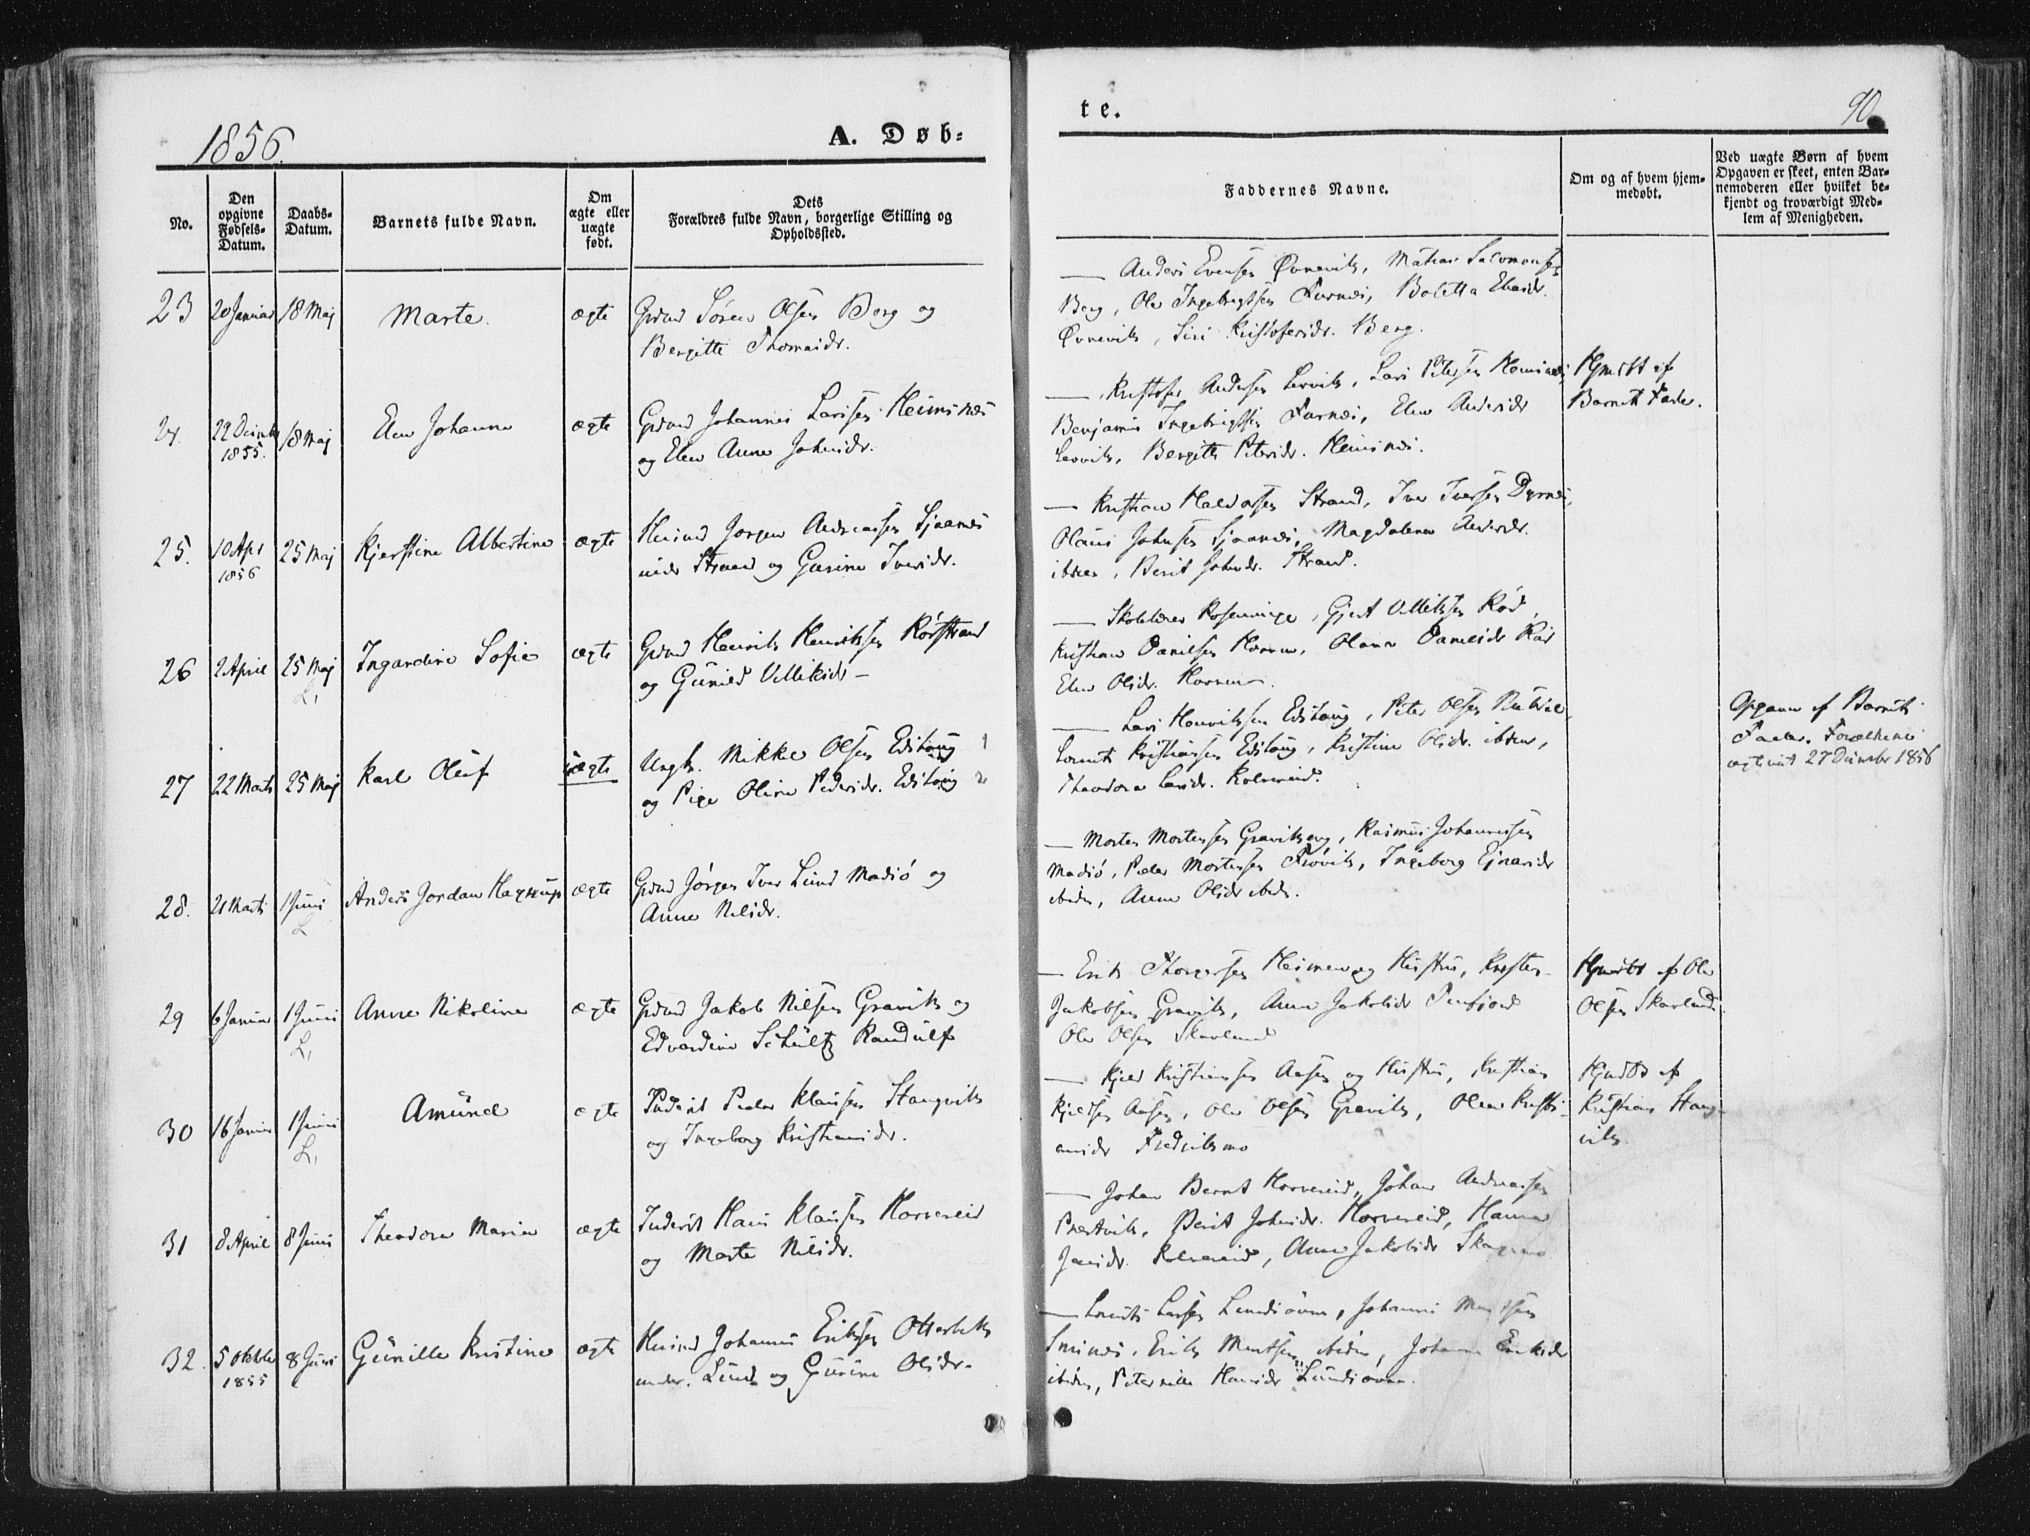 1856.
A. Døb-
te.
90
No.
Den
opgivne
Fødsels-
Datum.
Daabs-
Datum.
Barnets fulde Navn.
Om
ægte eller
uægte
født.
Dets
Forældres fulde Navn, borgerlige Stilling og
Opholdssted.
Faddernes Navne.
Om og af hvem hjem-
medøbt.
Ved uægte Børn af hvem
Opgaven er skeet, enten Bar-
nemoderen eller hvilket be-
kjendt og troværdigt Med-
lem af Menigheden.
23 20 Januar 18 Maj Marte. ægte Grdmd Sören Olsen Berg og
Bergitte Thomasdr.
— Anders Evensen Øvnevik, Mathias Salomonsen
Berg, Ole Ingebrigtsen Furnæs, Boletta Eliasdr.
Øvnevik, Siri Kristofersdr. Berg.
24. 29 Decmb 1855. 18 Maj Elen Johanna ægte Grdmd Johannes Larssen Heimsnæs
og Elen Anna Johnsdr.
— Kristofer Andersen Lervik, Lars Petersen Heimsnæs,
Benjamin Ingebrigtsen Furnæs, Elen Andersdr
Lervik, Bergitte Petersdr. Heimsnæs.
Hjmdbt af
Barnets Fader.
25. 10 Apr 1856 25 Maj Kjerstine Albertine ægte Huusmd Jørgen Andreassen Sjaanæs
under Strand og Gurine Iversdr.
— Kristian Haldorsen Strand, Iver Iversen Dyrnæs,
Olaus Johnsen Sjaanæs, Magdalena Andersdr.
ibden, Berit Johnsdr. Strand.
26 2 April 25 Maj L, Ingardine Sofie ægte Grdmd Henrik Henriksen Rörstrand
og Gunild Villiksdr —
— Skolelærer Rosenvinge, Gjert Villiksen Röd,
Kristian Danielsen Horven, Olava Danielsdr Röd
Elen Olsdr. Horven.
27 22 Marts 25 Maj Karl Oluf uægte Ungk. Mikkel Olsen Edshaug 1
og Pige Oline Pedersdr. Edshaug 2
— Lars Henriksen Edshaug, Peter Olsen
Lorents Kristiansen Edshaug, Kristine Olsdr. ibden,
Theodora Larsdr. Kolvereid.
Opgaven af Barnets
Fader. Forældrene
ægteviet 27 December 1856
28. 21 Marts 1 Juni L Anders Jordan Hagerup ægte Grdmd Jörgen Iver Lund Madsö og
Anne Nilsdr.
— Morten Mortensen Gravikaug, Rasmus Johannessen
Madsö, Peder Mortensen Frövik, Ingeborg Ejnarsdr
ibiden, Anne Olsdr ibidn.
29 6 Januar 1 Juni L, Anne Nikoline ægte Grdmd Jakob Nilsen Gravik og
Edvardine Schultz Randulf
— Erik Thorersen Heimen og Hustru, Krister
Jakobsen Gravik, Anne Jakobsdr
Ole Olsen Skarland
Hjmdbt af Ole
Olsen Skarland.
30 16 Januar 1 Juni L, Amund ægte Inderst Peder Klausen Stangvik
og Ingeborg Kristiansdr.
— Kjeld Kristiansen Aasen og Hustru, Kristian
Kjeldsen Aasen, Ole Olsen Gravik, Olava Kristi-
ansdr Fredriksmo
Hjmdbt af
Kristian Stang-
vik.
31 8 April 8 Juni Theodora Maria ægte Inderst Hans Klausen Horvereid
og Marta Nilsdr.
— Johan Bernt Horvereid, Johan Andreassen
Præstvik, Berit Johnsdr. Horvereid, Hanna
Jensdr. Kolvereid, Anne Jakobsdr
32. 5 Oktbr 1855 8 Juni Gunille Kristine ægte Huusmd Johannes Eriksen Otterbek
under Lund og Gurine Olsdr.
— Lorents Larsen Lundsövne, Johannes
Erik ibiden, Johanna Eriksdr
ibiden, Peternille Hansdr Lundsövne.